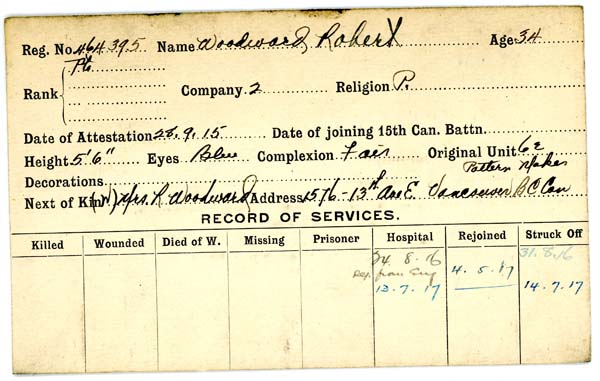 Reg. No. 464395 Name Woodward, Robert Age 34
Pte
Rank Company 2 Religion P.
Date of Attestation 28.9.15 Date of joining 15th Can. Battn.
Height 5'6" Eyes Blue Complexion Fair Original Unit 62
Decorations Pattern Makes
Next of Kin (W) Mrs. R Woodward Address 1576-13th Ave E. Vancouver B C Can
RECORD OF SERVICES.
Killed Wounded Died of W. Missing Prisoner Hospital Rejoined Struck Off
24.8.16 31.8.16
from Eng 4.5.17
13.7.17 14.7.17